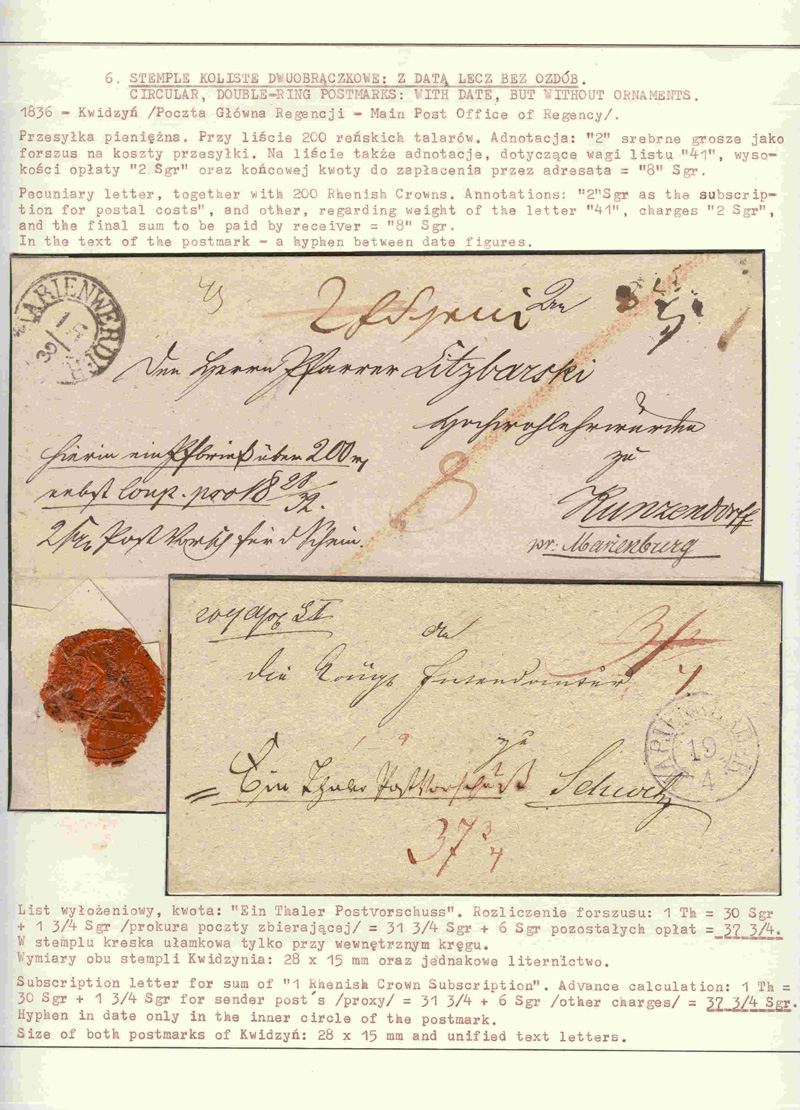 6. STEMPLE KOLISTE DWUOBRĄCZKOWE: Z DATĄ LECZ BEZ OZDÓB.
CIRCULAR, DOUBLE-RING POSTMARKS: WITH DATE, BUT WITHOUT ORNAMENTS.
1836 - Kwidzyń /Poczta Główna Regencji - Main Post Office of Regency/.
Przesyłka pieniężna. Przy liście 200 reńskich talarów. Adnotacja: "2" srebrne grosze jako
forszus na koszty przesyłki. Na liście także adnotacje, dotyczące wagi listu "41", wyso-
kości opłaty "2 Sgr" oraz końcowej kwoty do zapłacenia przez adresata = "8" Sgr.
Pecuniary letter, together with 200 Rhenish Crowns. Annotations: "2"Sgr as the subscrip-
tion for postal costs", and other, regarding weight of the letter "41", charges "2 Sgr",
and the final sum to be paid by receiver = "8" Sgr.
In the text of the postmark - a hyphen between date figures.
MARIENWERDER
Den Herrn Pfarrer Litzbarski
Hochwohlehrwürden
zu
Kunzendorff
pr: Marienburg
hierin ein Pfbrief über 200
nebst Coup. pro 18 28/32.
2 Post Vorsch für d Schein.
8
3/4
die Königl Intendantur
zu
Ein Thaler PostVorschuß Schwetz
MARIENWERDER
19
4
37 3/4
List wyłożeniowy, kwota: "Ein Thaler Postvorschuss". Rozliczenie forszusu: 1 Th = 30 Sgr
+ 1 3/4 Sgr /prokura poczty zbierającej/ = 31 3/4 Sgr + 6 Sgr pozostałych opłat = 37 3/4.
W stemplu kreska ułamkowa tylko przy wewnętrznym kręgu.
Wymiary obu stempli Kwidzynia: 28 x 15 mm oraz jednakowe liternictwo.
Subscription letter for sum of "1 Rhenish Crown Subscription". Advance calculation: 1 Th =
30 Sgr + 1 3/4 Sgr for sender post's /proxy/ = 31 3/4 + 6 Sgr /other charges/ = 37 3/4 Sgr.
Hyphen in date only in the inner circle of the postmark.
Size of both postmarks of Kwidzyń: 28 x 15 mm and unified text letters.